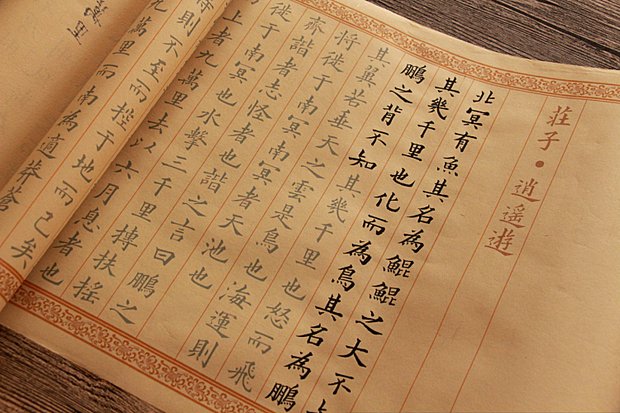 莊子·逍遙遊
北冥有魚其名為鯤鯤之大不
其幾千里也化而為鳥其名為鵬
鵬之背不知其幾千里也怒而飛
其翼若垂天之雲是鳥也海運則
將徙于南冥南冥者天池也
齊諧者志怪者也諧之言曰鵬之
徙于南冥也水擊三千里摶扶搖
上者九萬里去以六月息者也
則不至而控于地而已矣
萬里而南為適莽蒼